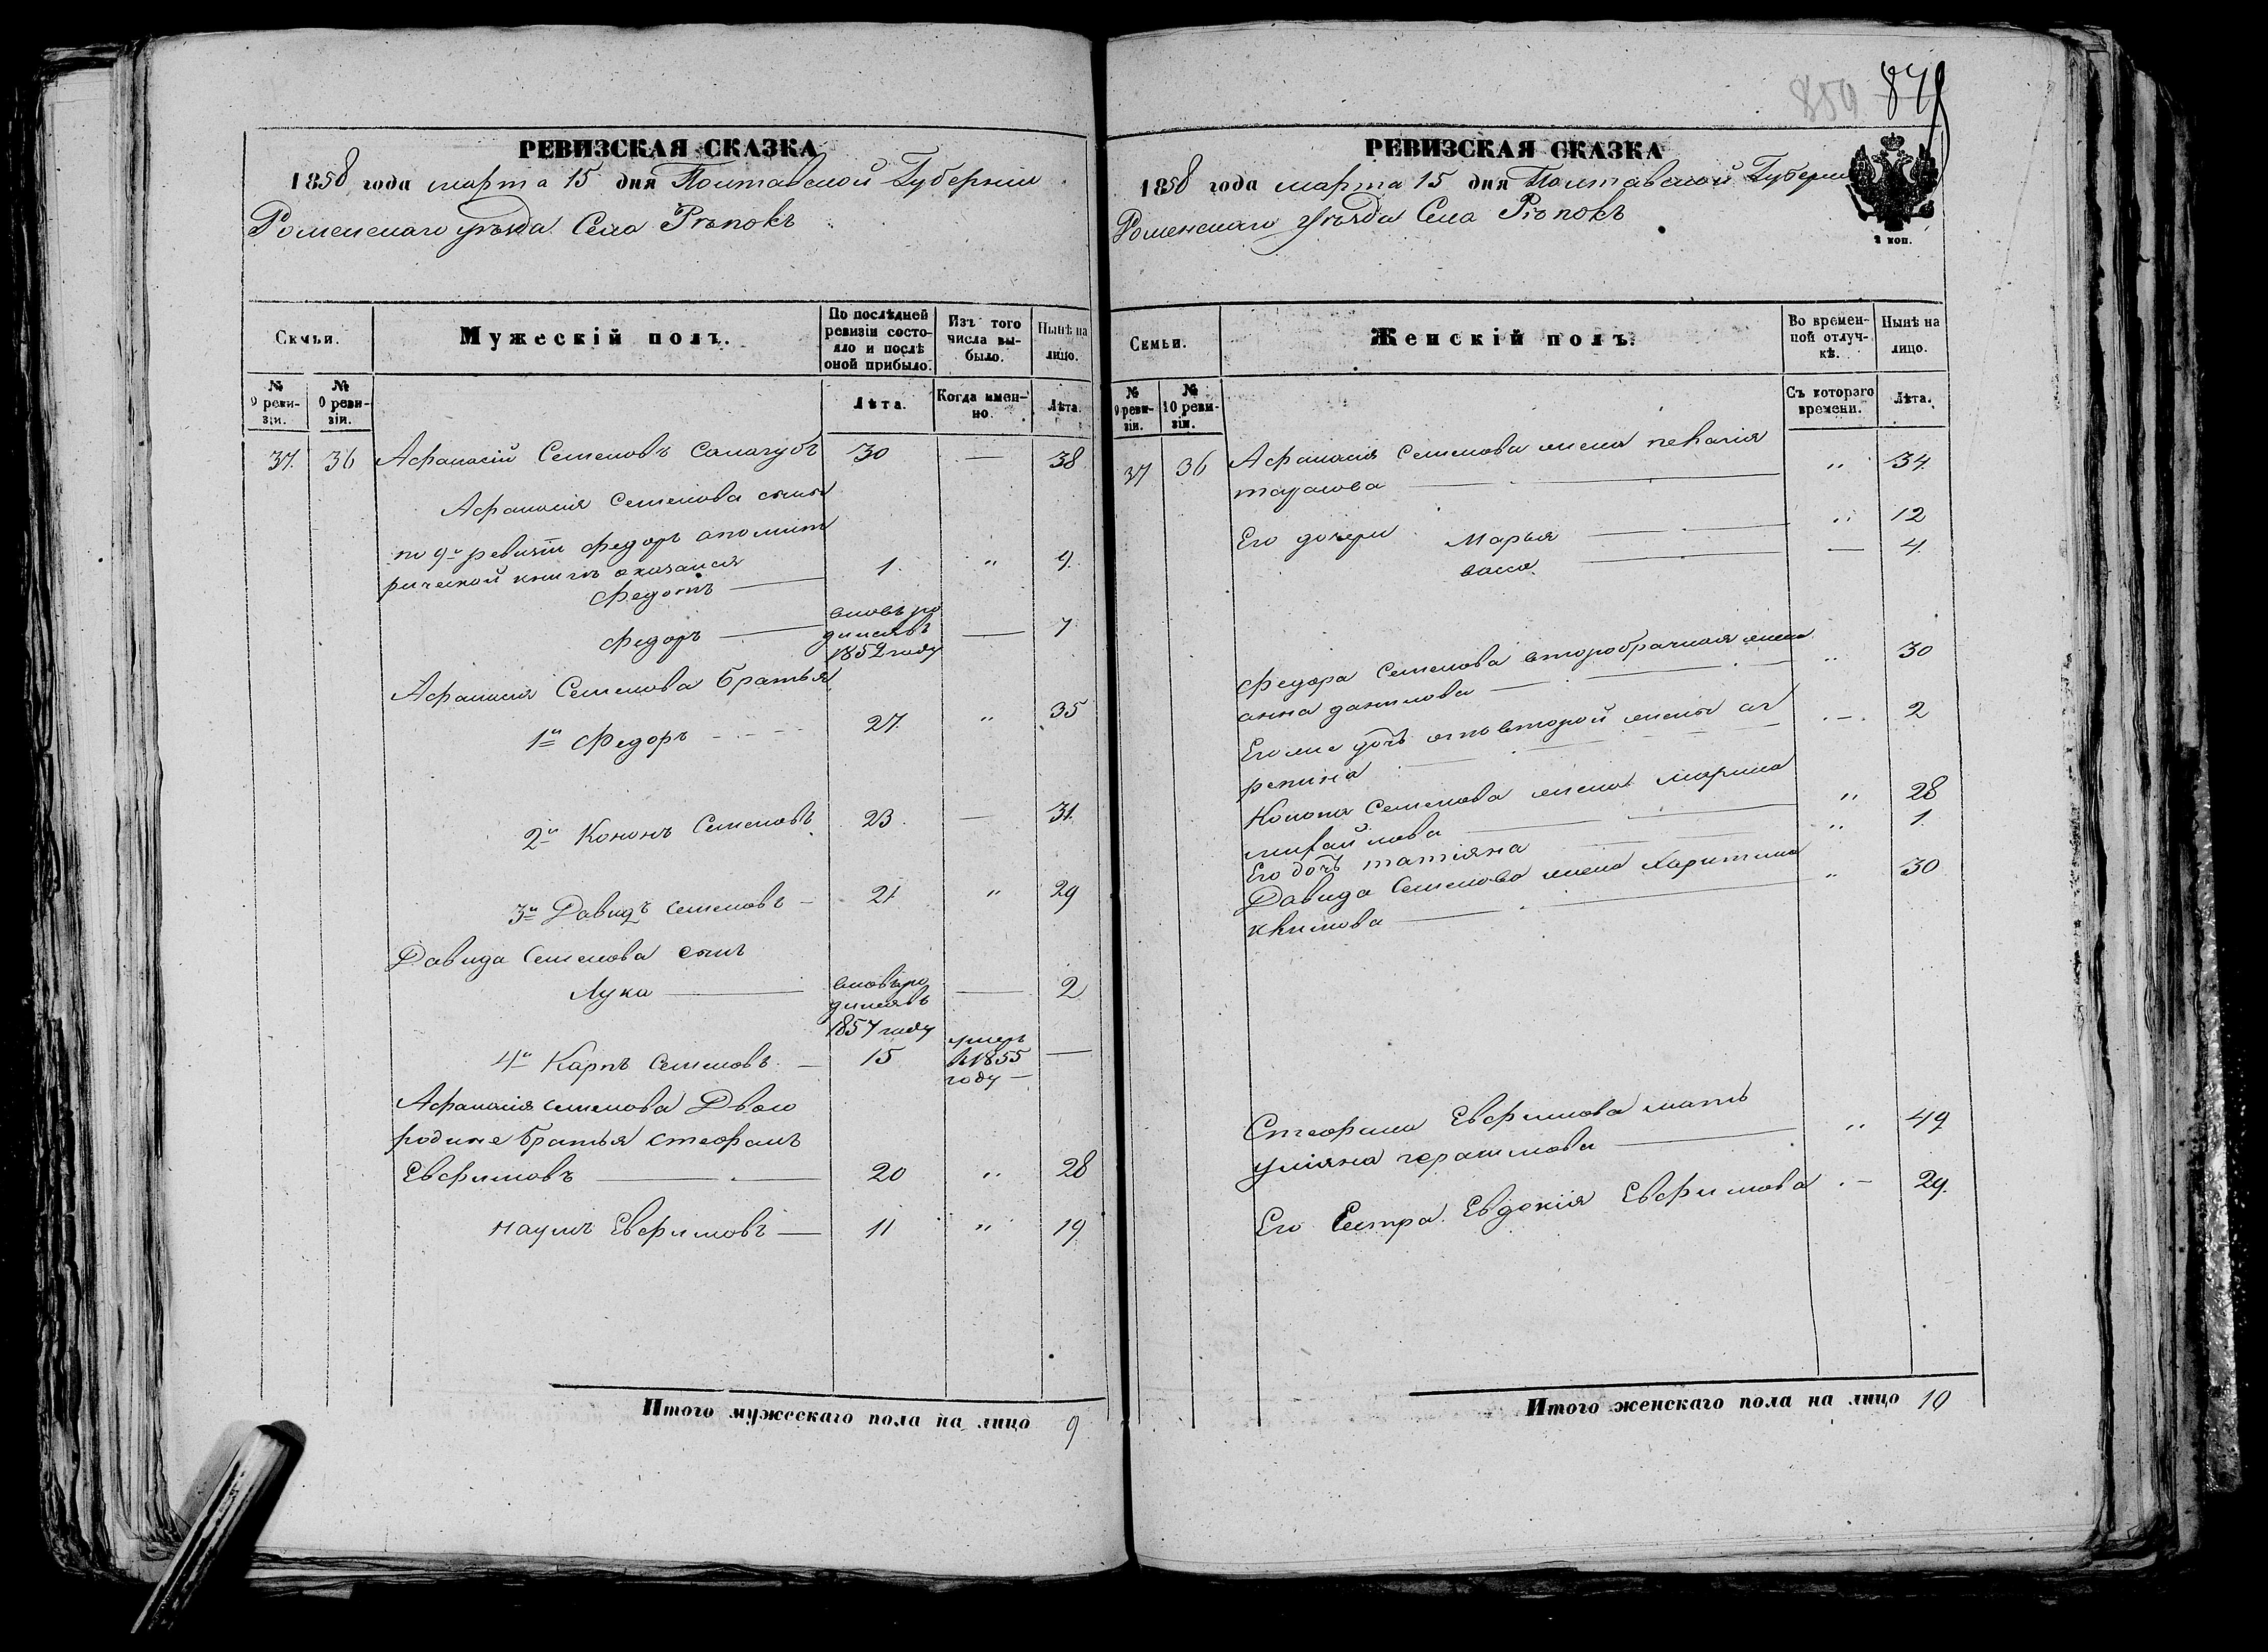 850 849
РЕВИЗСКАЯ СКАЗКА
1858 года марта 15 дня Полтавской Губернии
Роменскаго уѣзда Села Рѣпокъ
Семьи.
Мужескій полъ.
По послѣдней ревизіи состояло и послѣ оной прибыло.
Изъ того числа выбыло.
Нынѣ на лицо.
№ 9 ревизіи.
№ 0 ревизіи.
Лѣта.
Когда именно.
Лѣта.
37. 36 Афанасій Семеновъ Самагубъ 30 — 38
Афанасія Семенова сыны
по 9й ревизіи Федоръ апомит
рической книгѣ оказался
Федотъ — 1. " 9.
Федоръ — вновь ро
дился въ — 7
1852 году
Афанасия Семенова братья
1й Федоръ - - - 27. " 35
2й Кононъ Семеновъ 23. — 31.
3й Давидъ Семеновъ - 21 " 29
Давида Семенова сынъ
Лука — вновь ро
дился въ — 2
1857 году
4й Карпъ Семеновъ — 15 умеръ
в 1855 —
году —
Афанасія Семенова Двою
родине братья Стефанъ
Евфимовъ — 20 " 28
Наумъ Евфимовъ — 11 " 19
Итого мужескаго пола на лицо 9
РЕВИЗСКАЯ СКАЗКА
1858 года марта 15 дня Полтавской Губерни
Роменскаго Уѣзда Села Рѣпокъ
2 коп.
Семьи.
Женскій полъ.
Во временной отлучкѣ.
Нынѣ на лицо.
№ 9 ревизіи.
№ 10 ревизіи.
Съ котораго времени.
Лѣта.
37 36 Афанасия Семенова жена
тарасова — " 34.
Его дочери Марья — " 12
васса — — 4.
Федора Семенова второбрачная жена
анна данилова — " 30
Его же дочь от второй жены аг
репина — 2
Конона Семенова жена марина
михайлова — " 28
Его дочь татіяна — " 1.
Давида Семенова жена Харитина
якимова — " 30
Стефана Евфимова мать
уліяна герасимова — " 49
Его Сестра Евдокія Евфимова - 29.
Итого женскаго пола на лицо 10